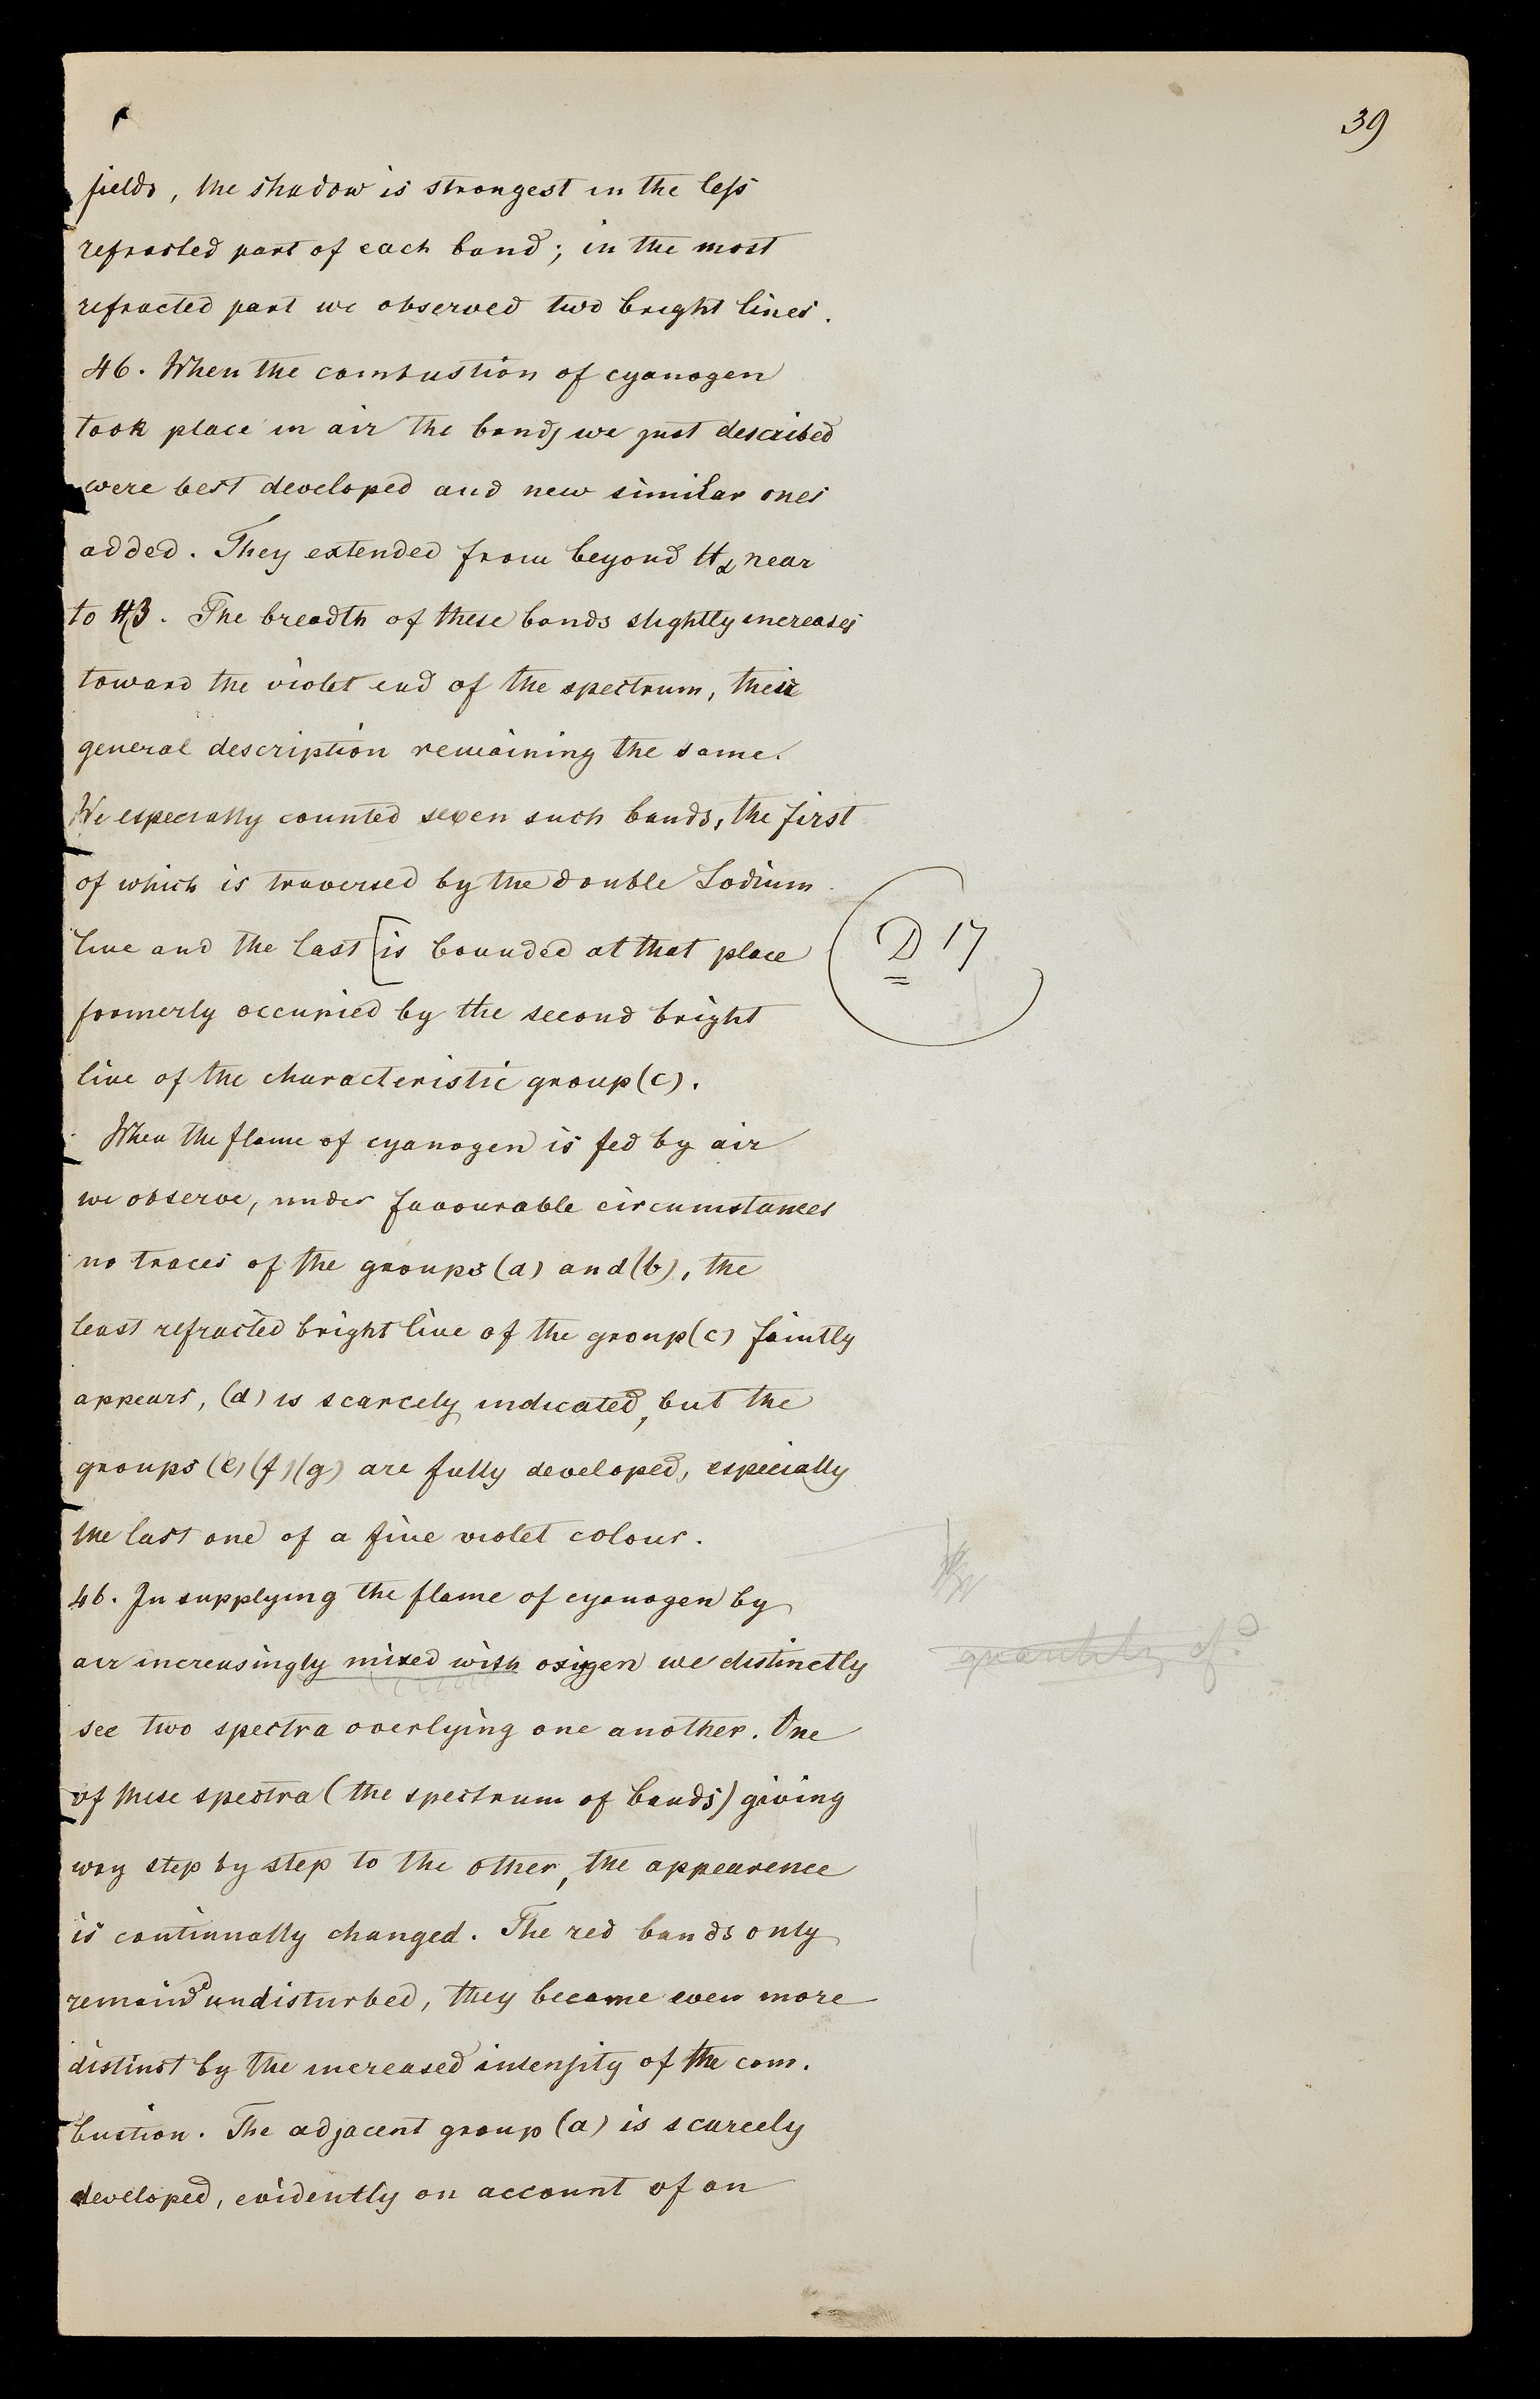 39
fields, the shadow is strongest in the less
refracted part of each band; in the most
refracted part we observed two bright lines.
46. When the combustion of cyanogen
took place in air the bands we just described
were best developed and new similar ones
added. They extended from beyond Hα near
to Hβ. The breadth of these bands slightly increases
toward the violet end of the spectrum, their
general description remaining the same.
We especially counted seven such bands, the first
of which is traversed by the double Sodium
line and the last [is bounded at that place
D 17
formerly occupied by the second bright
line of the characteristic group (c).
When the flame of cyanogen is fed by air
we observe, under favourable circumstances
no traces of the groups (a) and (b), the
least refracted bright line of the group (c) faintly
appears, (d) is scarcely indicated, but the
groups (e) (f) (g) are fully developed, especially
the last one of a fine violet colour.
46. In supplying the flame of cyanogen by
air increasingly mixed with oxigen we distinctly
quantity of
see two spectra overlying one another. One
of these spectra (the spectrum of bands) giving
way step by step to the other, the appearence
is continually changed. The red bands only
remaind undisturbed, they became even more
distinct by the increased intensity of the com.
bustion. The adjacent group (a) is scarcely
developed, evidently on account of an